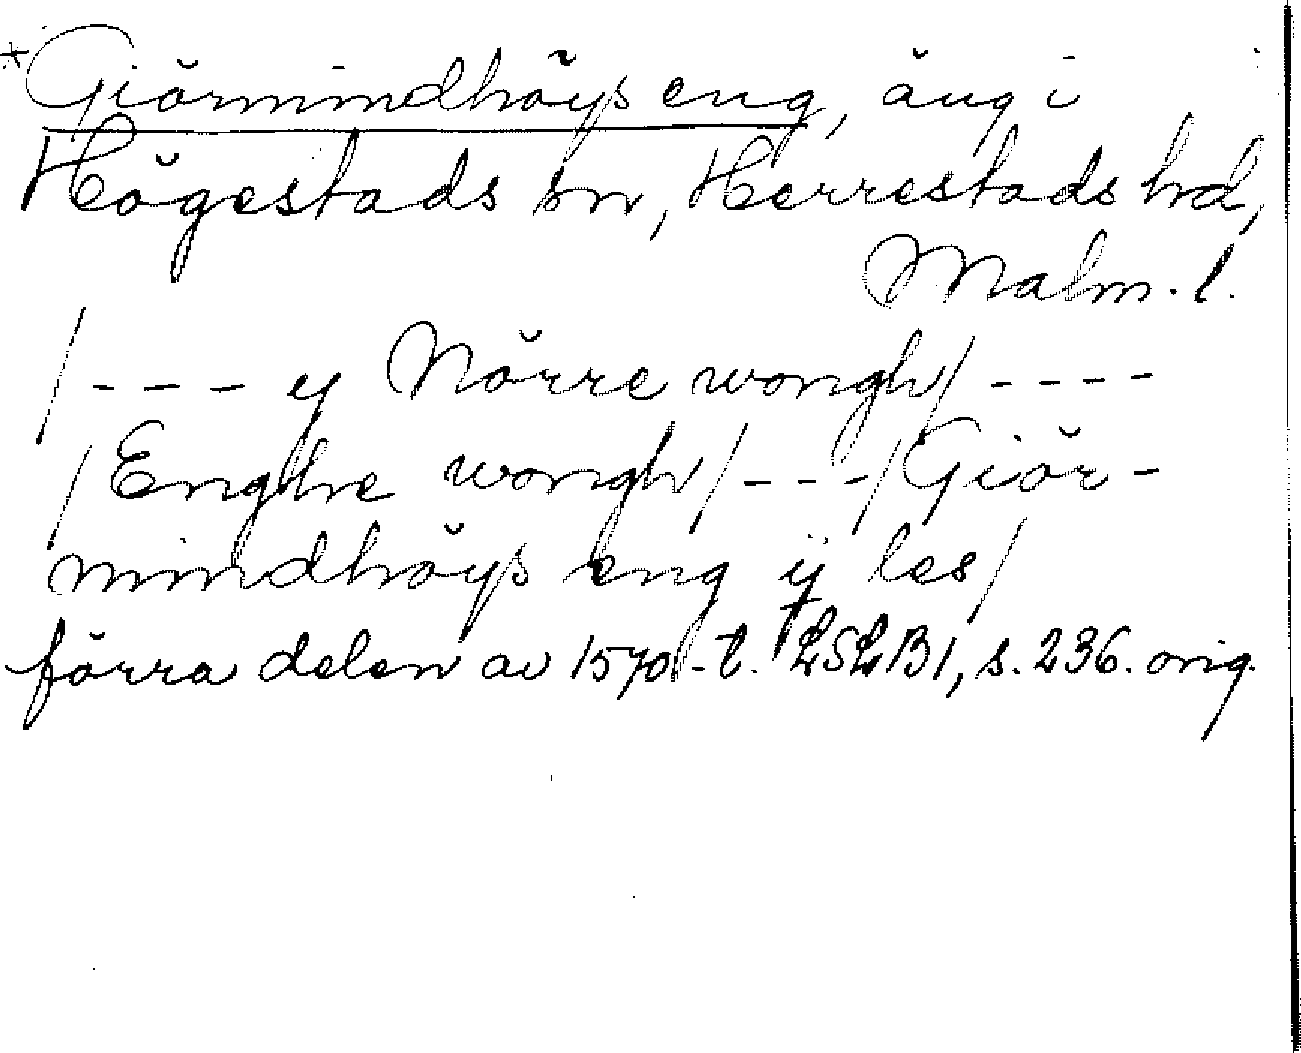 *Giörmindhöys eng, äng i
Högestads sn, Herrestads hd,
Malm. l.
/--- y Nörre wongh/ ----
/Enghe wongh/---/Giör-
mindhöys eng ij les/
förra delen av 1570-t. LSLB1, s. 236. orig.